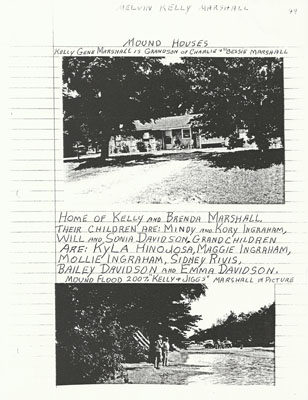 MELVIN KELLY MARSHALL
MOUND HOUSES
KELLY GENE MARSHALL IS GRANDSON OF CHARLIE + BESSIE MARSHALL
HOME OF KELLY AND BRENDA MARSHALL
THEIR CHILDREN ARE: MINDY AND KORY INGRAHAM,
WILL AND SONIA DAVIDSON, GRANDCHILDREN
ARE: KYLA HINOJOSA, MAGGIE INGRAHAM,
MOLLIE INGRAHAM, SIDNEY RIVIS,
BAILEY DAVIDSON AND EMMA DAVIDSON.
MOUND FLOOD 2007. KELLY + "JIGGS" MARSHALL IN PICTURE